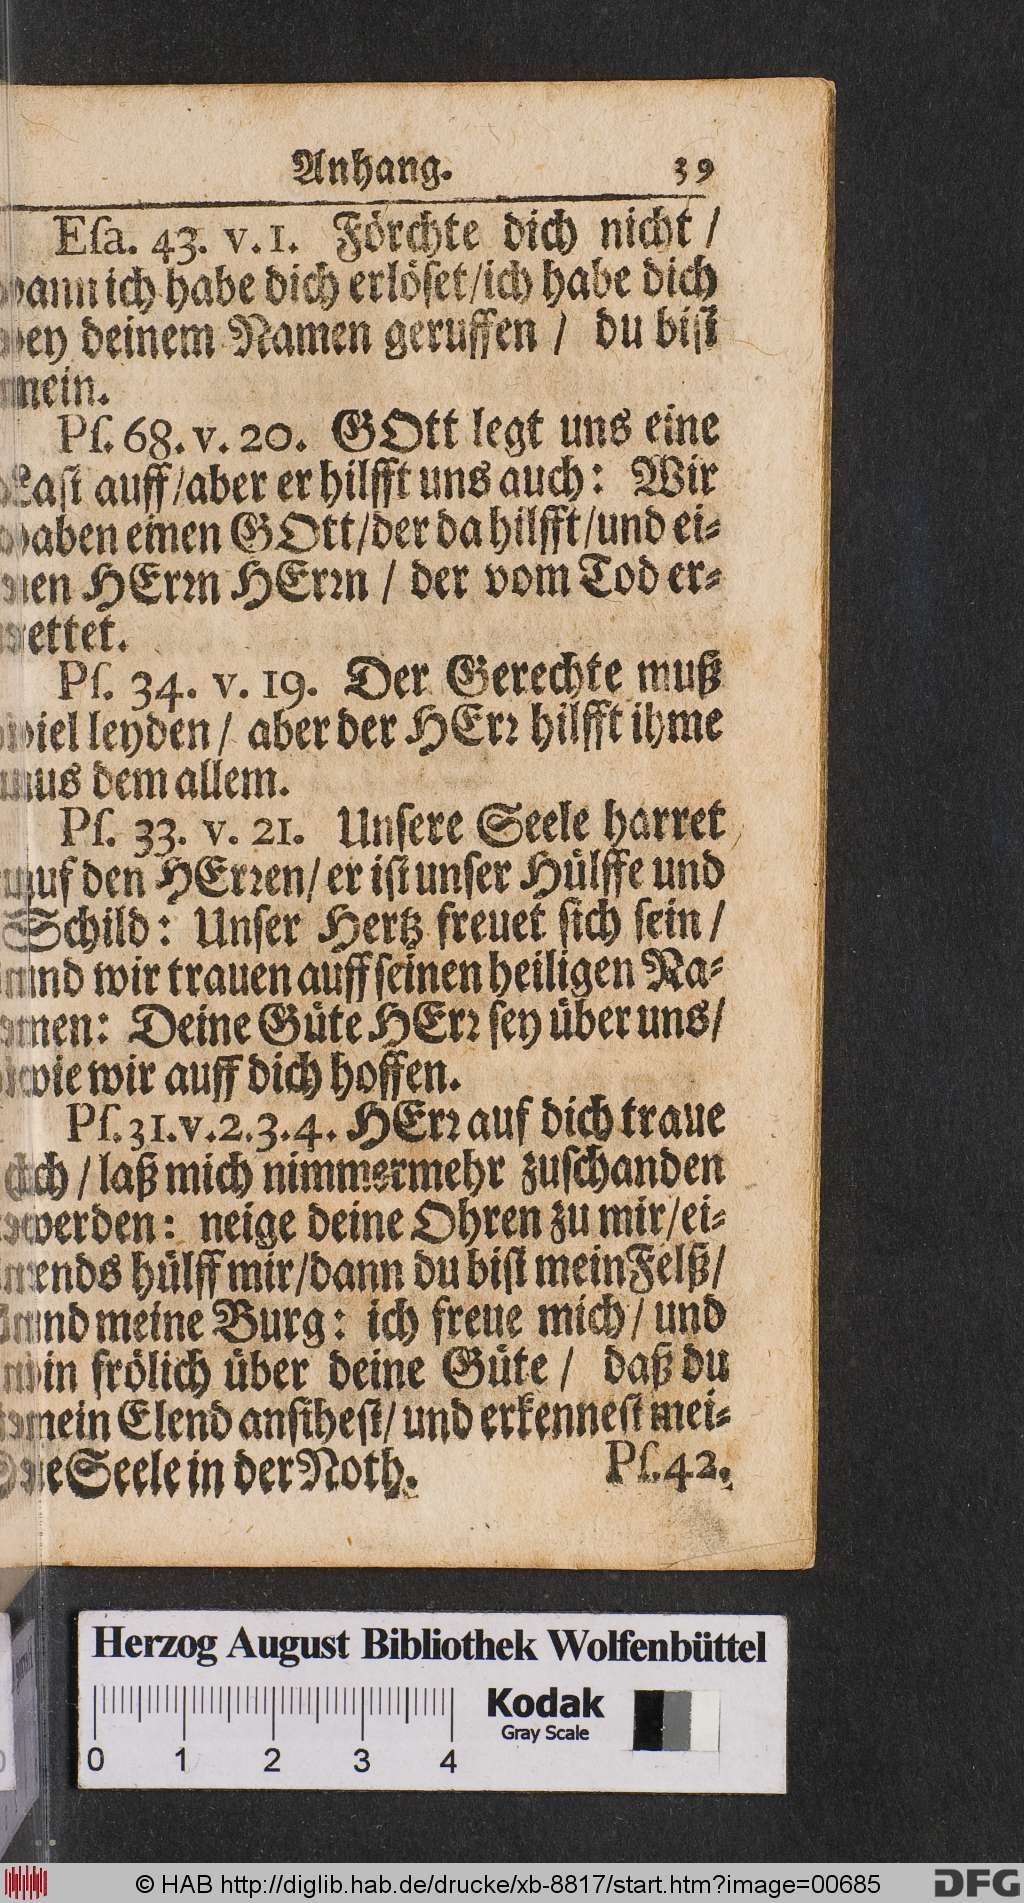 Anhang. 39
Eſa. 43. v. 1. Förchte dich nicht /
dann ich habe dich erlöſet/ich habe dich
bey deinem Namen geruffen / du biſt
mein.
Pſ. 68. v. 20. GOtt legt uns eine
Laſt auff/aber er hilfft uns auch: Wir
haben einen GOtt/der da hilfft/und ei-
nen HErꝛn HErꝛn / der vom Tod er-
rettet.
Pſ. 34. v. 19. Der Gerechte muß
viel leyden / aber der HErꝛ hilfft ihme
aus dem allem.
Pſ. 33. v. 21. Unſere Seele harret
auf den HErꝛen/ er iſt unſer Hülffe und
Schild: Unſer Hertz freuet ſich ſein /
und wir trauen auff ſeinen heiligen Na-
men: Deine Güte HErꝛ ſey über uns/
wie wir auff dich hoffen.
Pſ. 31. v. 2. 3. 4. HErꝛ auf dich traue
ich / laß mich nimmermehr zuſchanden
werden: neige deine Ohren zu mir/ei-
lends hülff mir/dann du biſt mein Felß/
und meine Burg: ich freue mich / und
bin frölich über deine Güte / daß du
mein Elend anſiheſt/ und erkenneſt mei-
ne Seele in der Noth. Pſ. 42.
Herzog August Bibliothek Wolfenbüttel
Kodak
Gray Scale
0 1 2 3 4
© HAB http://diglib.hab.de/drucke/xb-8817/start.htm?image=00685
DFG